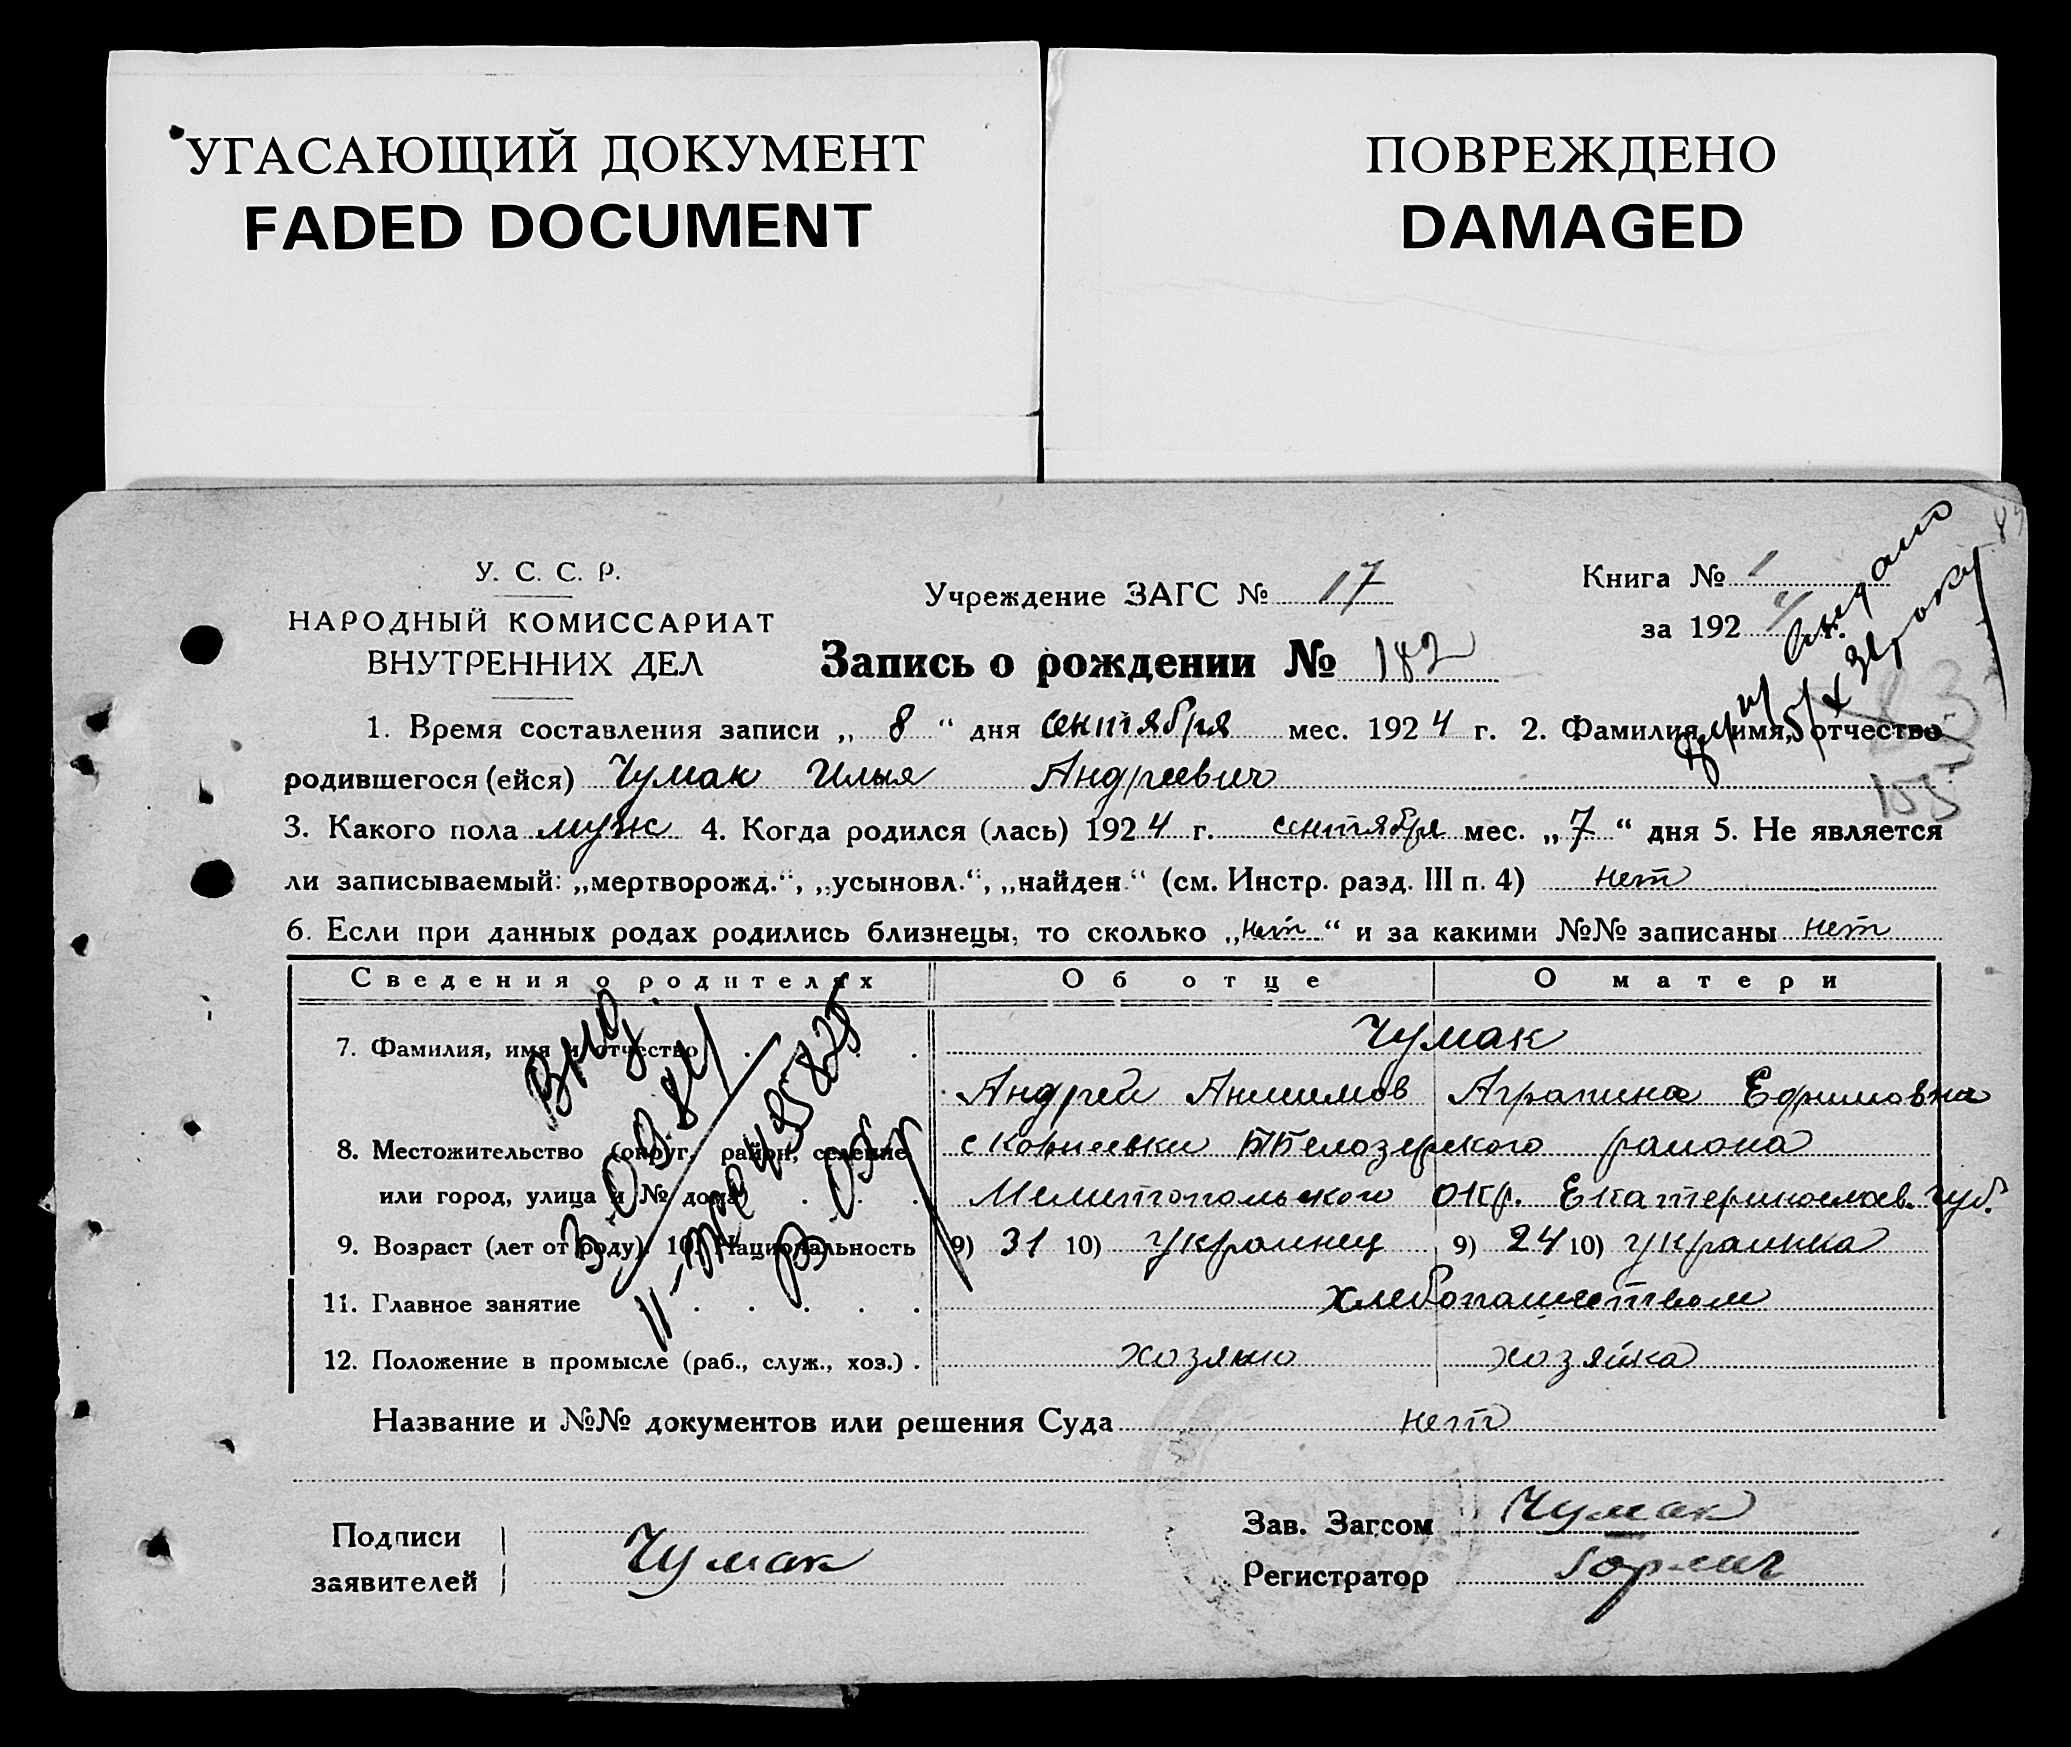 УГАСАЮЩИЙ ДОКУМЕНТ
FADED DOCUMENT
ПОВРЕЖДЕНО
DAMAGED
У. С. С. Р.
НАРОДНЫЙ КОМИССАРИАТ
ВНУТРЕННИХ ДЕЛ
Учреждение ЗАГС № 17
Книга № 1
за 192 4 г.
Запись о рождении № 182
1. Время составления записи „ 8 “ дня сентября мес. 192 4 г. 2. Фамилия, имя, отчество
родившегося (ейся) Чумак Илья Андреевич
3. Какого пола муж 4. Когда родился (лась) 192 4 г. сентября мес. „ 7 “ дня 5. Не является
ли записываемый: „мертворожд.“, „усыновл.“, „найден“ (см. Инстр. разд. III п. 4) нет
6. Если при данных родах родились близнецы, то сколько „нет“ и за какими №№ записаны нет
Сведения о родителях Об отце О матери
7. Фамилия, имя и отчество Чумак
Андрей Анисимов Аграпина Ефимовна
8. Местожительство (округ, район, селение Белозерского района
или город, улица и № дома) Мелитопольского окр. Екатеринослав. губ.
9. Возраст (лет от роду) 10. Национальность 9) 31 10) украинец 9) 24 10) украинка
11. Главное занятие хлебопашеством
12. Положение в промысле (раб., служ., хоз.) хозяин хозяйка
Название и №№ документов или решения Суда нет
Подписи
заявителей Чумак
Зав. Загсом Чумак
Регистратор
105